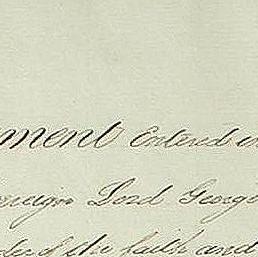 ment Entered in
vereign Lord George
der of the faith and